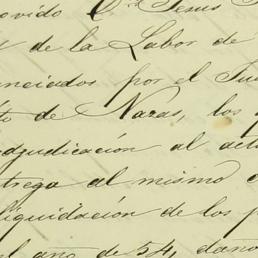 ovido C. Jesus
de la Labor de
nciados por el Jue
to de Nazas, los
adjudicación al act
trega al mismo
liquidación de los
el año de 54, daño